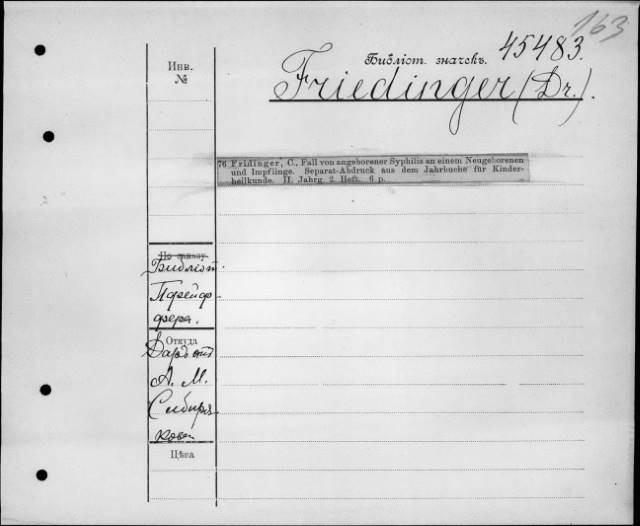 163
Библіот. значекъ. 45483.
Инв.
№
Friedinger (Dr.).
76 Fridinger, C., Fall von angeborener Syphilis an einem Neugeborenen
und Impflinge. Separat-Abdruck aus dem Jahrbuche für Kinder-
heilkunde. II. Jahrg. 2. Heft. 6 p.
По заказу
Библіот.
Пфейф
фера.
Откуда
Даръ отъ
А. М.
Сибиря
кова
Цѣна